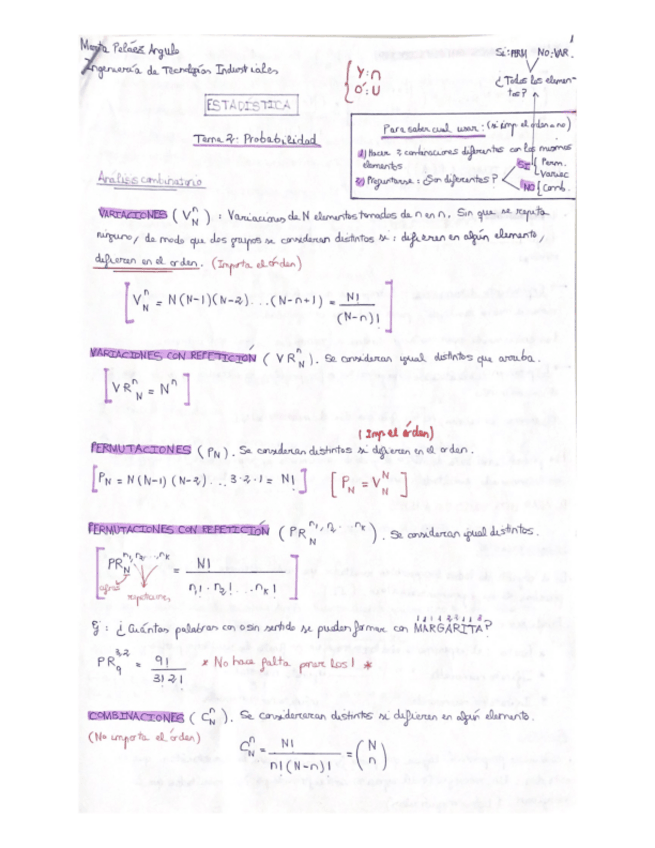 Marta Peláez Angulo
Ingeniería de Tecnologías Industriales
ESTADÍSTICA
Tema 2: Probabilidad
{ Y: ∩
O: ∪
SI: PERM NO: VAR.
¿Todos los elemen-
tos?
Para saber cual usar: (si imp el orden o no)
1) Hacer 2 combinaciones diferentes con los mismos
elementos
2) Preguntarse: ¿Son diferentes?
SI { Perm.
Variac
NO { Comb.
Análisis combinatorio
VARIACIONES (V_N^n): Variaciones de N elementos tomados de n en n. Sin que se repita
ninguno, de modo que dos grupos se consideran distintos si: difieren en algún elemento,
difieren en el orden. (Importa el órden)
[V_N^n = N(N-1)(N-2)...(N-n+1) = N! / (N-n)!]
VARIACIONES CON REPETICIÓN (VR_N^n). Se consideran igual distintos que arriba.
[VR_N^n = N^n]
(Imp el órden)
PERMUTACIONES (P_N). Se consideran distintos si difieren en el orden.
[P_N = N(N-1)(N-2)...3·2·1 = N!] [P_N = V_N^N]
PERMUTACIONES CON REPETICIÓN (PR_N^{n1, n2...nk}). Se consideran igual distintos.
[PR_N^{n1, n2...nk} = N! / n1!·n2!...nk!]
repeticiones
Ej: ¿Cuántas palabras con o sin sentido se pueden formar con MARGARITA?
PR_9^{3,2} = 9! / 3!2! * No hace falta poner los 1 *
COMBINACIONES (C_N^n). Se consideraran distintos si difieren en algún elemento.
(No importa el órden)
C_N^n = N! / n!(N-n)! = (N n)